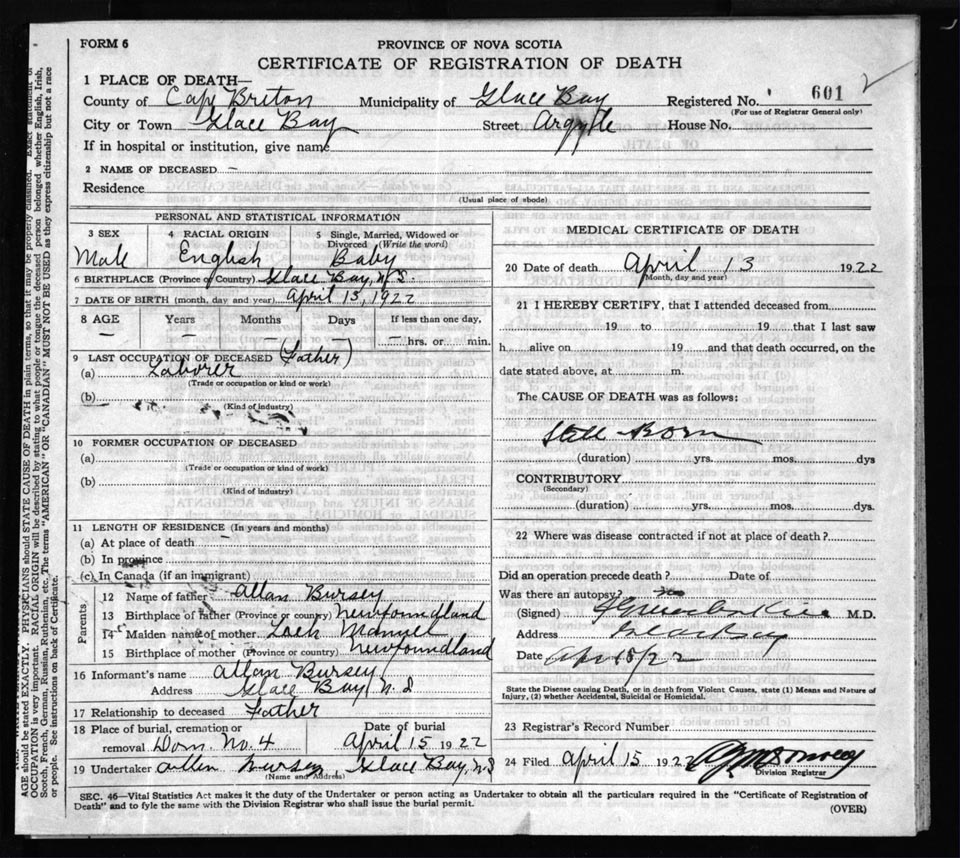 FORM 6
PROVINCE OF NOVA SCOTIA
CERTIFICATE OF REGISTRATION OF DEATH
1 PLACE OF DEATH—
County of Cape Breton Municipality of Glace Bay Registered No. 601 2
(For use of Registrar General only)
City or Town Glace Bay Street Argyle House No.
If in hospital or institution, give name
2 NAME OF DECEASED —
Residence
(Usual place of abode)
PERSONAL AND STATISTICAL INFORMATION
3 SEX Male
4 RACIAL ORIGIN English
5 Single, Married, Widowed or Divorced (Write the word) Baby
6 BIRTHPLACE (Province or Country) Glace Bay, N.S.
7 DATE OF BIRTH (month, day and year) April 13, 1922
8 AGE Years Months Days If less than one day,
— — — — hrs. or min.
9 LAST OCCUPATION OF DECEASED (Father)
(a) Laborer
(Trade or occupation or kind or work)
(b)
(Kind of industry)
10 FORMER OCCUPATION OF DECEASED
(a)
(Trade or occupation or kind of work)
(b)
(Kind of industry)
11 LENGTH OF RESIDENCE (In years and months)
(a) At place of death
(b) In province
(c) In Canada (if an immigrant)
Parents
12 Name of father Allan Bursey
13 Birthplace of father (Province or country) Newfoundland
14 Maiden name of mother Manuel
15 Birthplace of mother (Province or country) Newfoundland
16 Informant's name Allan Bursey
Address Glace Bay, N.S
17 Relationship to deceased Father
18 Place of burial, cremation or removal Dom. No. 4 Date of burial April 15 1922
19 Undertaker Allen Bursey Glace Bay, N.S
(Name and Address)
MEDICAL CERTIFICATE OF DEATH
20 Date of death April 13 1922
(Month, day and year)
21 I HEREBY CERTIFY, that I attended deceased from
19 to 19 that I last saw
h alive on 19 and that death occurred, on the
date stated above, at m.
The CAUSE OF DEATH was as follows:
Still Born
(duration) yrs. mos. dys
CONTRIBUTORY
(Secondary)
(duration) yrs. mos. dys.
22 Where was disease contracted if not at place of death?
Did an operation precede death? Date of
Was there an autopsy? no
(Signed) M.D.
Address Glace Bay
Date Apr 15/22
State the Disease causing Death, or in death from Violent Causes, state (1) Means and Nature of Injury, (2) whether Accidental, Suicidal or Homicidal.
23 Registrar's Record Number
24 Filed April 15 1922
Division Registrar
SEC. 46—Vital Statistics Act makes it duty of the Undertaker or person acting as Undertaker to obtain all the particulars required in the "Certificate of Registration of
Death" and to fyle the same with the Division Registrar who shall issue the burial permit.
(OVER)
AGE should be stated EXACTLY. PHYSICIANS should STATE CAUSE OF DEATH in plain terms, so that it may be properly classified. Exact statement of
OCCUPATION is very important. RACIAL ORIGIN will be described by stating to what people or tongue the deceased person belonged whether English, Irish,
Scotch, French, German, Russian, Ruthenian, etc. The terms "AMERICAN" OR "CANADIAN" MUST NOT BE USED as they express citizenship but not a race
or people. See instructions on back of Certificate.